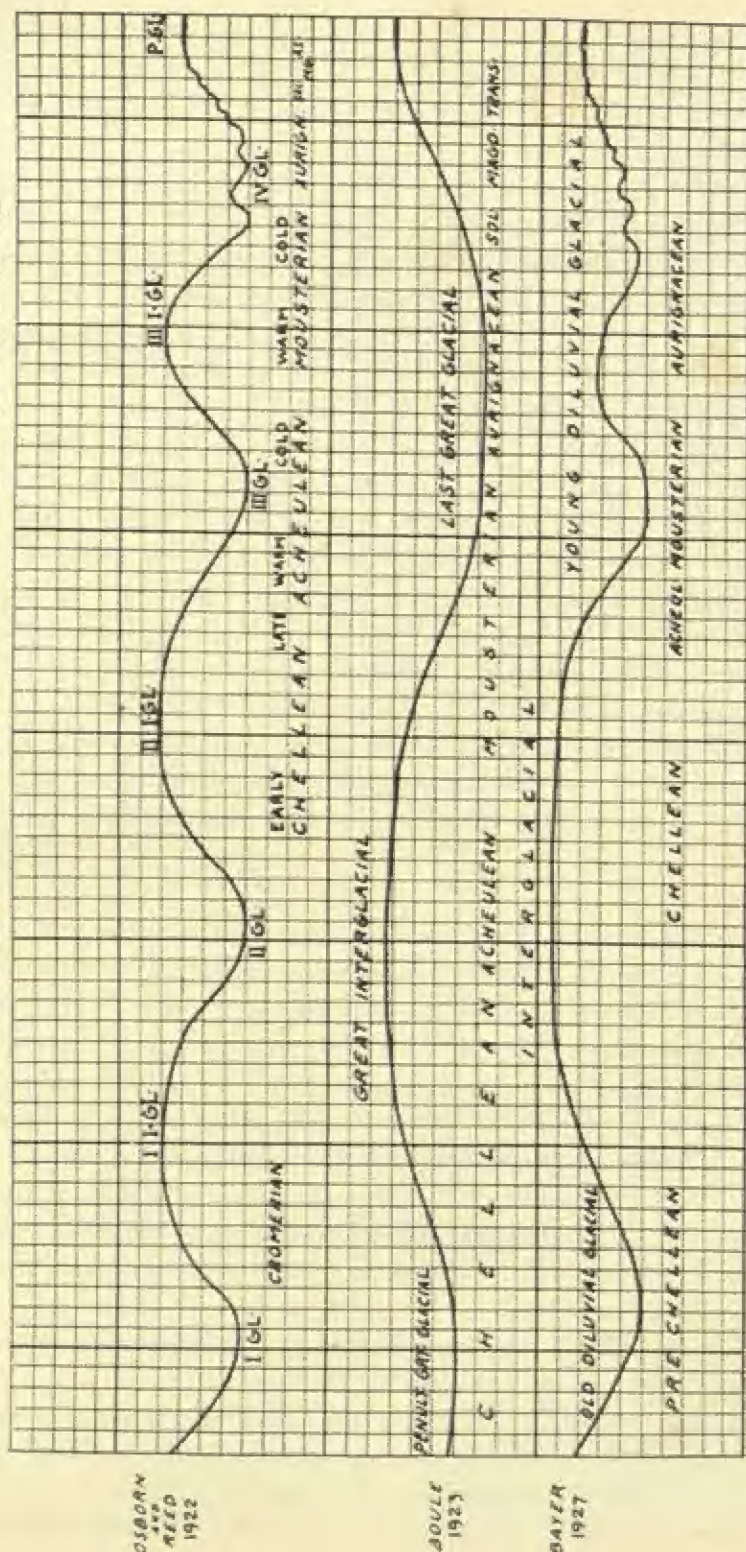 OSBORN
AND
REED
1922
I GL
I I·GL
II GL
II I·GL
III GL
III I·GL
IV GL
P.GL
CROMERIAN
EARLY LATE WARM COLD WARM COLD
CHELLEAN ACHEULEAN MOUSTERIAN AURIGN.
BOULE
1923
PENULT GRT GLACIAL
GREAT INTERGLACIAL
LAST GREAT GLACIAL
CHELLEAN ACHEULEAN MOUSTERIAN AURIGNACEAN SOL MAGD TRANS.
BAYER
1927
OLD DILUVIAL GLACIAL
INTERGLACIAL
YOUNG DILUVIAL GLACIAL
PRE CHELLEAN CHELLEAN ACHEOL MOUSTERIAN AURIGNACEAN